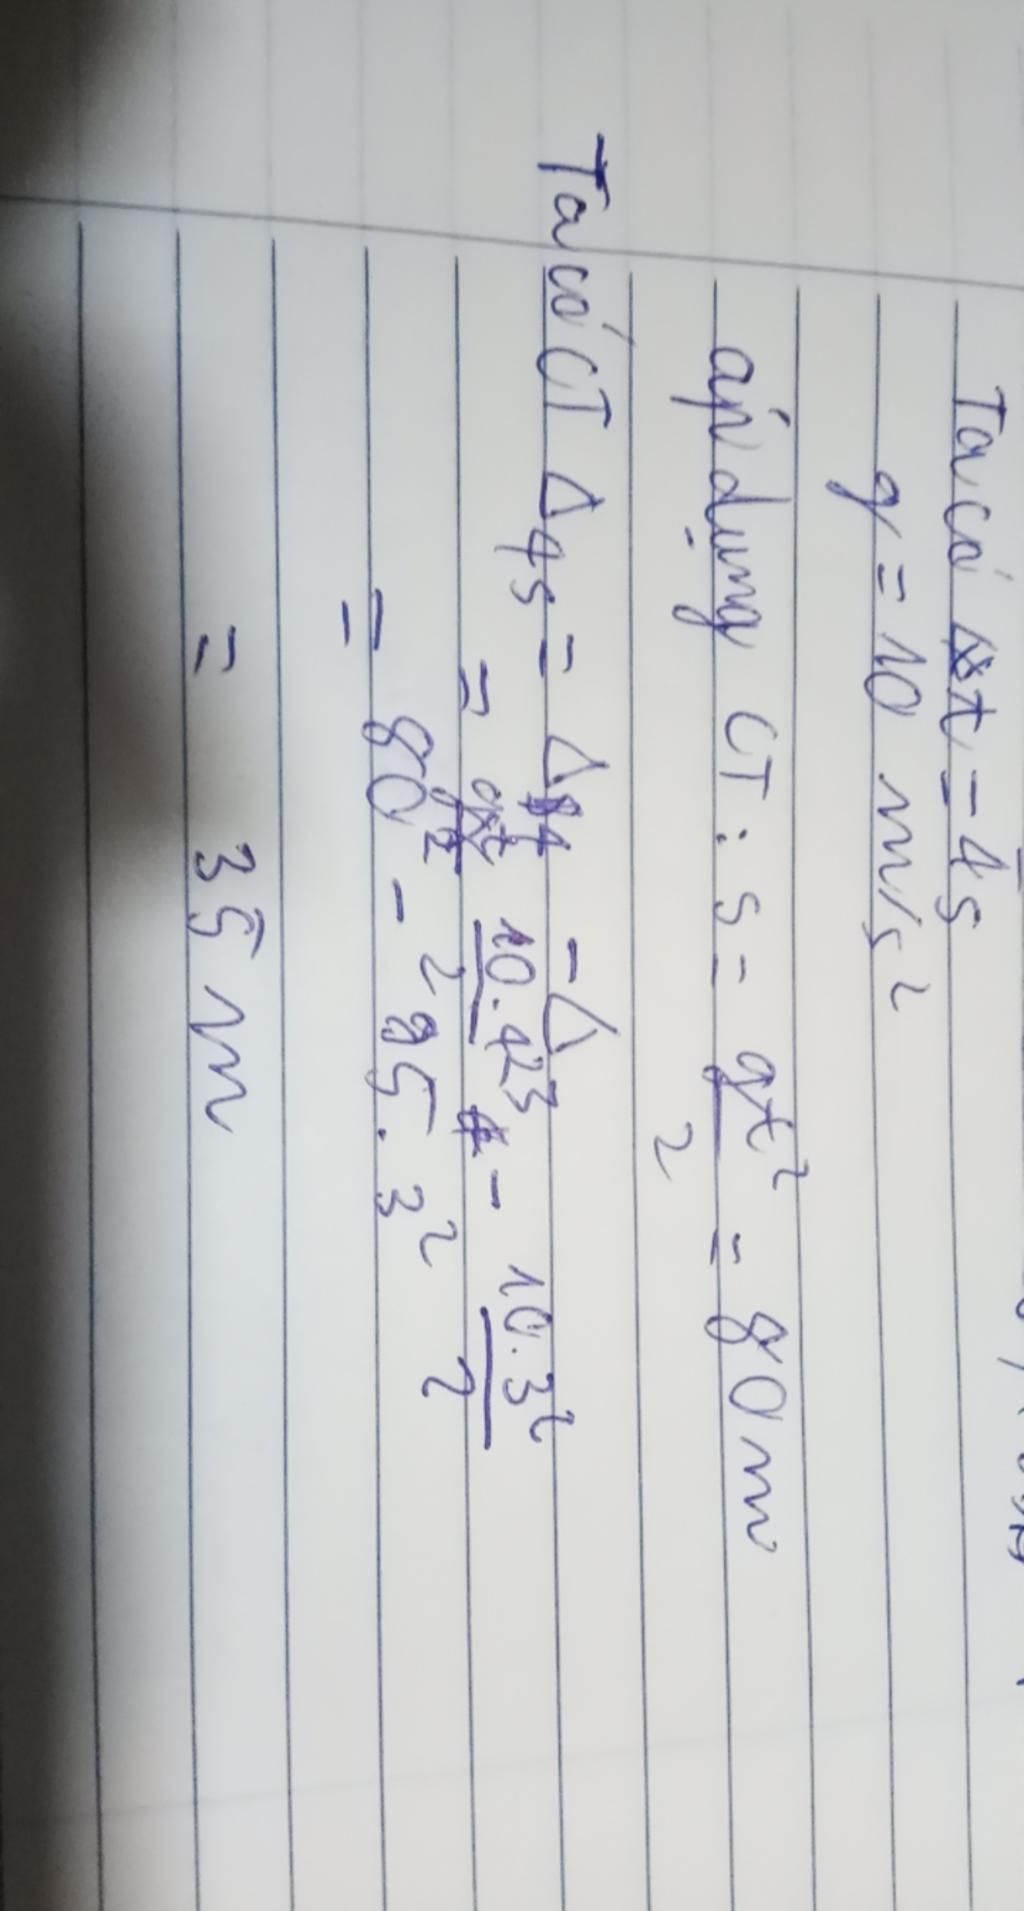 Ta có t = 4s
g = 10 m/s²
áp dụng CT : S = gt² = 80m
2
Ta có CT Δ4s = Δ4 - Δ3
= 10.4² - 10.3²
2 2
= 80 - 5.3²
= 35 m